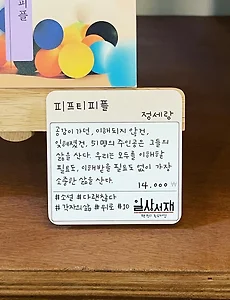 피플
피프티피플
정세랑
공감이 가던, 이해되지 않건,
잊혀졌건, 51명의 주인공은 그들의
삶을 산다. 우리는 모두를 이해할
필요도, 이해받을 필요도 없이 가장
소중한 삶을 산다.
14,000 ₩
#소설 #다괜찮다
#각자의삶 #위로 #50
일상서재